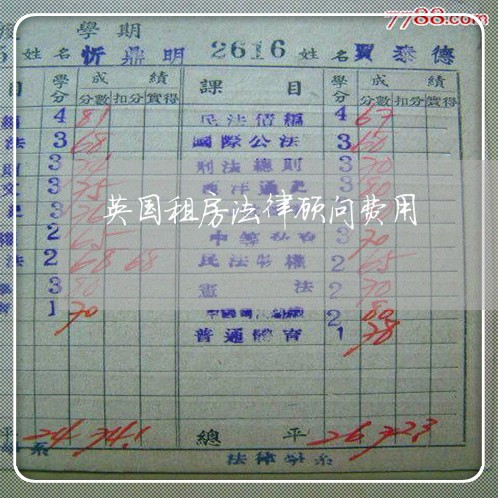 7788.com
學期
姓名 忻鼎明 2616 姓名 賈泰德
目 學分 成績 課目 學分 成績
分數 扣分 實得 分數 扣分 實得
4 81 民法債編 4 67
法 3 68 國際公法 3 60
3 刑法總則 3 70
3 75 西洋通史 3 80
英国租房法律顾问费用
2 65 3 70
法 2 68 68 民法物權 2 65
3 80 憲法 2 70
1 70 2 80
普通體育 1 78
平 24 74.1 總平 26 72.3
系 法律學系